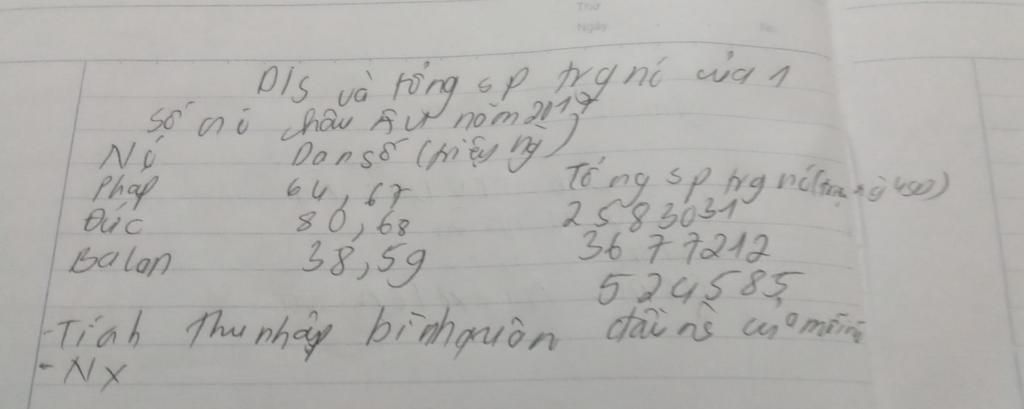 Thứ
Ngày No.
D/S và tổng sp trg nc của 1
số nc châu Âu năm 2017
Nc Dan số (triệu ng)
Pháp 64,67 Tổng sp trg nc (triệu USD)
Đức 80,68 2583031
Balan 38,59 3677212
524585,
-Tính thu nhập bình quân đầu ng của mỗi nc
- Nx